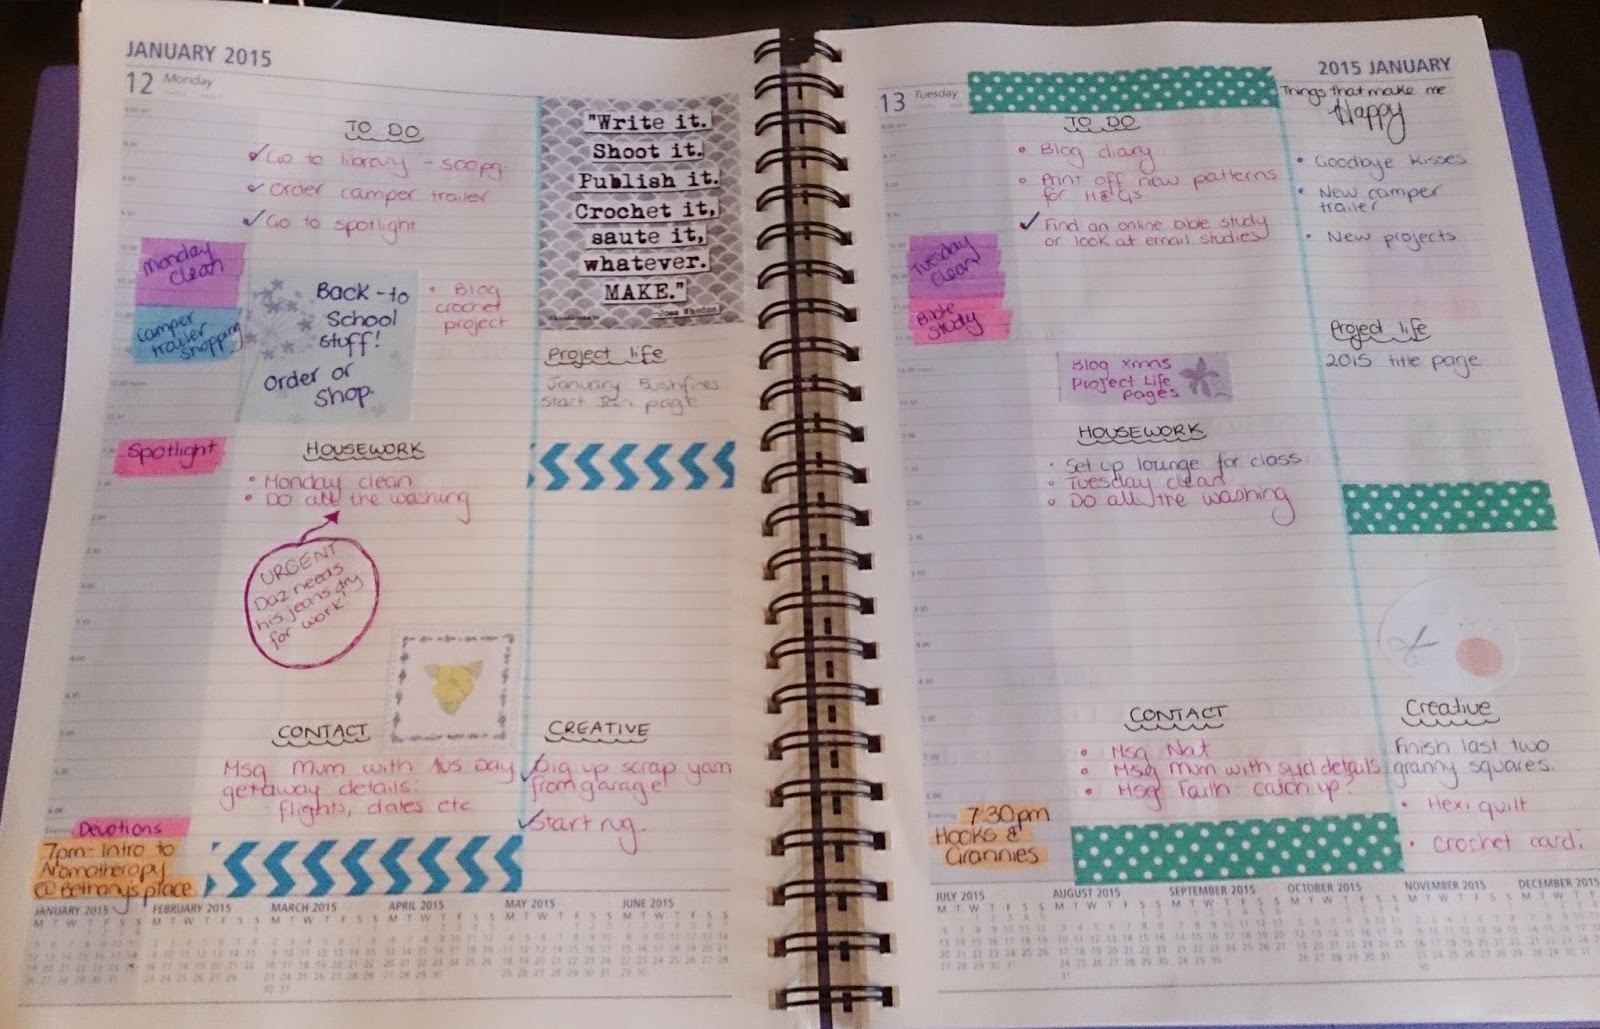 JANUARY 2015
12 Monday
TO DO
Go to library - 500pg.
Order camper trailer
Go to spotlight
Monday
clean
camper
trailer
shopping
Back-to
School
stuff!
Order or
Shop.
• Blog
crochet
project
Spotlight
HOUSEWORK
• Monday clean
• DO all the washing
URGENT
Daz needs
his jeans dry
for work
CONTACT
Msg Mum with Aus Day
getaway details:
flights, dates etc
Devotions
7pm- Intro to
Aromatherapy
@Bethany's place
"Write it.
Shoot it.
Publish it.
Crochet it,
saute it,
whatever.
MAKE."
-Joss Whedon
Project life
January Bushfires
Start Jan page
CREATIVE
Dig up scrap yarn
from garage
Start rug.
JANUARY 2015 FEBRUARY 2015 MARCH 2015 APRIL 2015 MAY 2015 JUNE 2015
M T W T F S S M T W T F S S M T W T F S S M T W T F S S M T W T F S S M T W T F S S
2015 JANUARY
13 Tuesday
TO DO
• Blog diary
• Print off new patterns
for H&Gs.
Find an online bible study
or look at email studies
Tuesday
clean
Bible
Study
Blog xmas
Project Life
pages
HOUSEWORK
• Set up lounge for class
• Tuesday clean
• DO all the washing
CONTACT
• Msg Nat
• Msg Mum with syd details
• Msg Faith catch up?
7:30pm
Hooks &
Grannies
Things that make me
Happy
• Goodbye kisses
• New camper
trailer
• New projects
Project life
2015 title page
Creative
Finish last two
granny squares.
• Hexi quilt
• Crochet cardi
JULY 2015 AUGUST 2015 SEPTEMBER 2015 OCTOBER 2015 NOVEMBER 2015 DECEMBER 2015